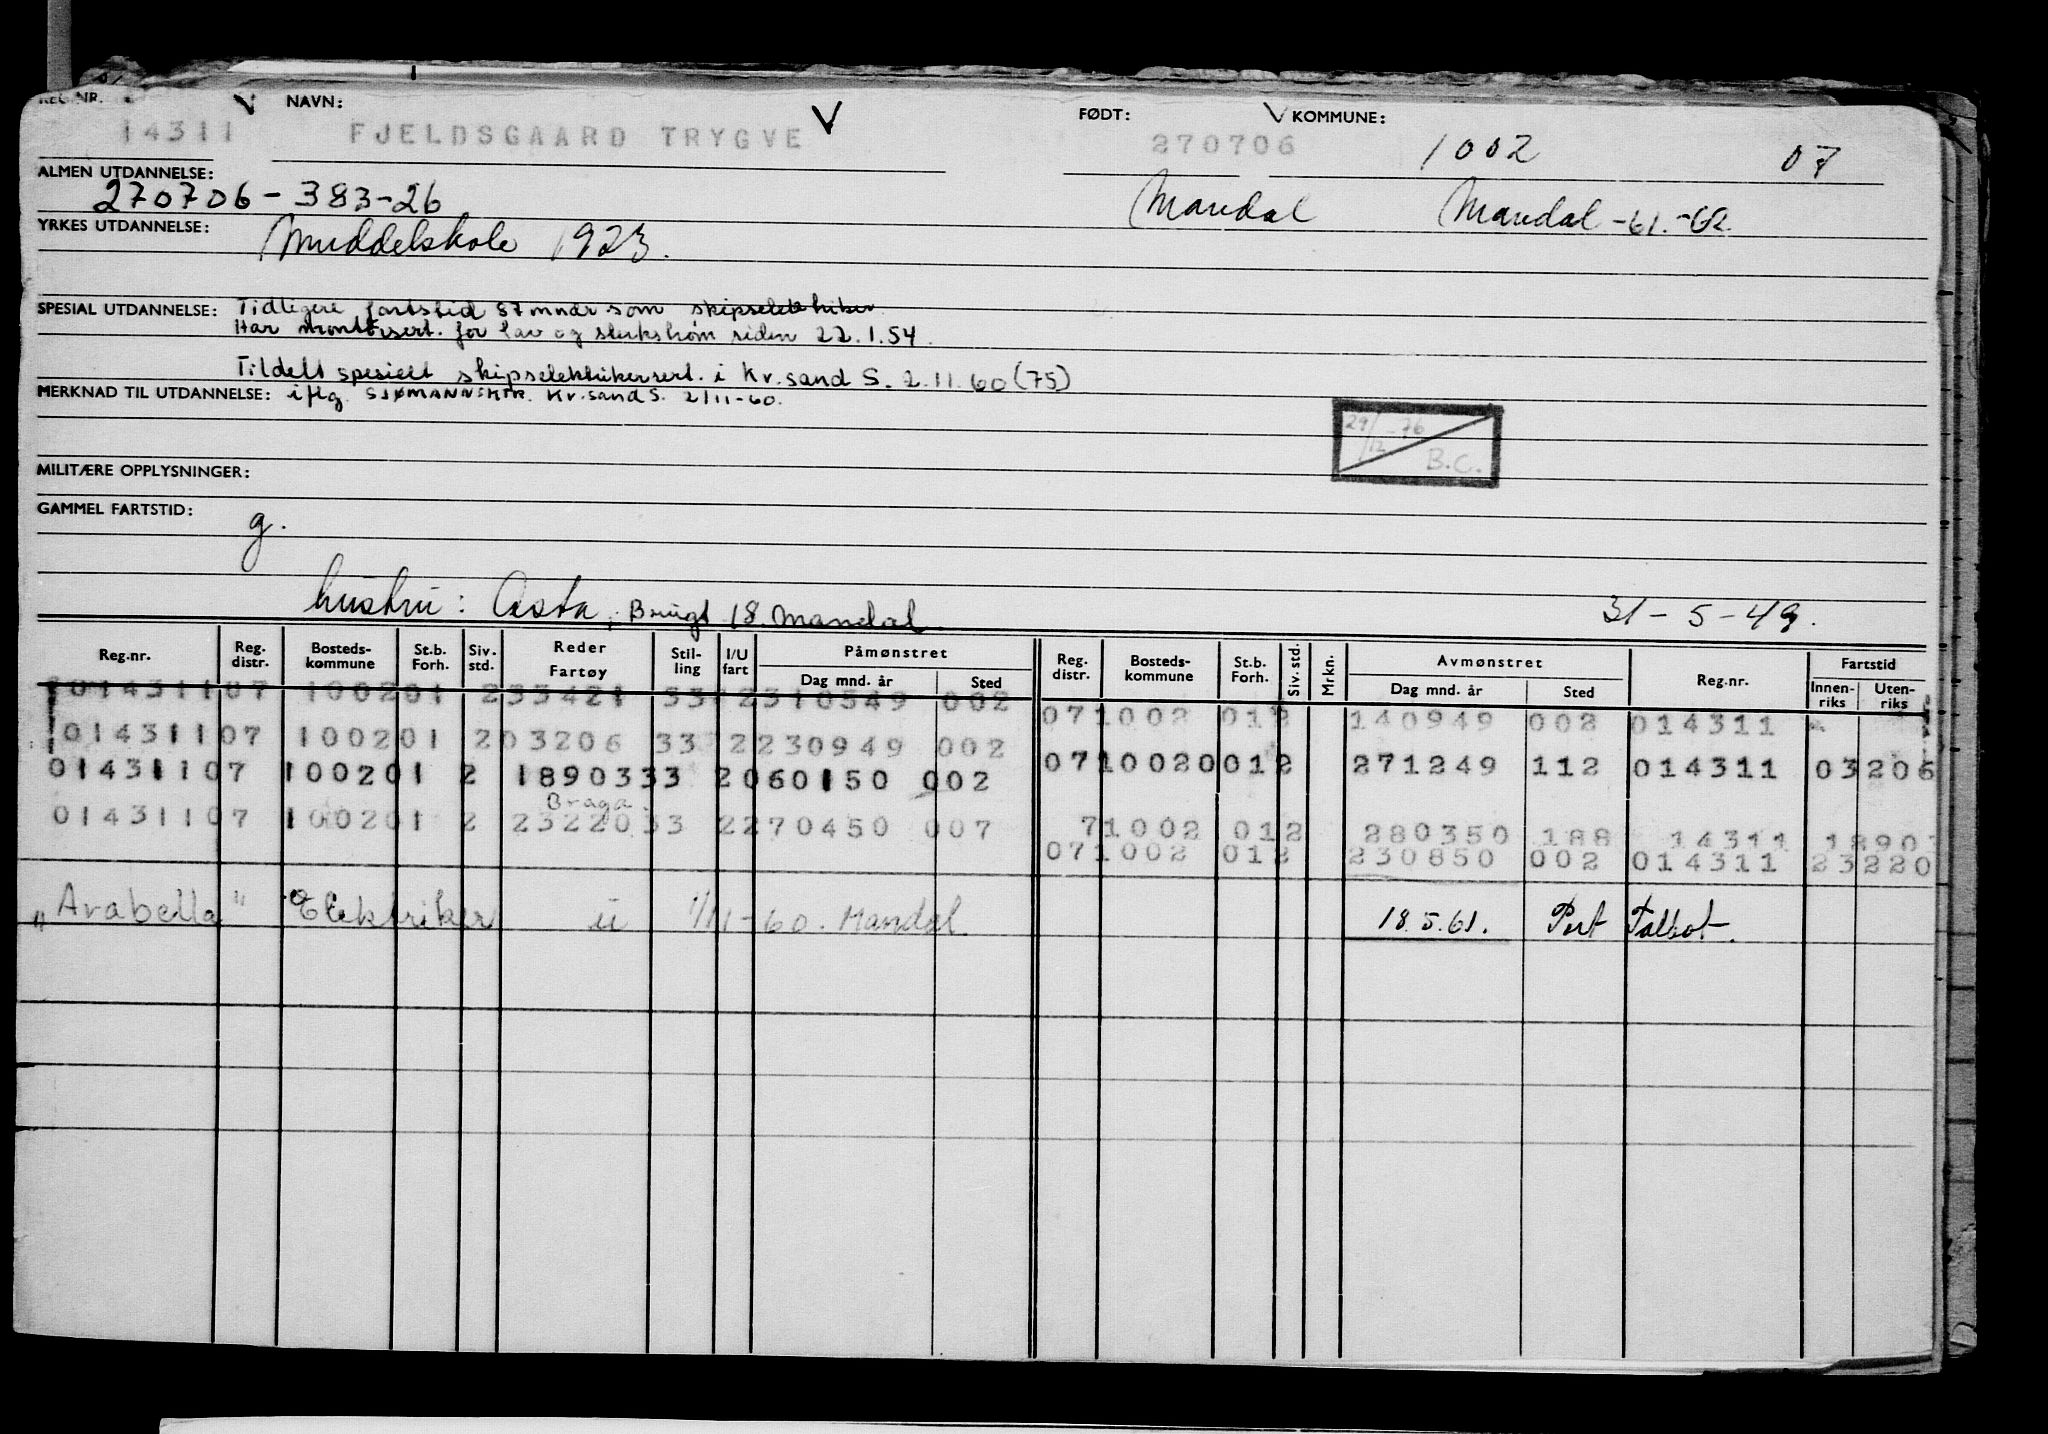 REG.NR. NAVN: FØDT: KOMMUNE:
14311 FJELDSGAARD TRYGVE V 270706 1002 07
ALMEN UTDANNELSE:
270706-383-26 Mandal Mandal-61.-62
YRKES UTDANNELSE: Middelskole 1923.
SPESIAL UTDANNELSE: Tidligere fartstid 87 mndr som skipselektriker
Har montørsert. for lav og sterkstrøm siden 22.1.54.
Tildelt spesielt skipselektrikersert. i Kr.sand S. 2.11.60 (75)
MERKNAD TIL UTDANNELSE: iflg. SJØMANNSKTR. Kr.sand S. 2/11-60.
29/12-76
B.C.
MILITÆRE OPPLYSNINGER:
GAMMEL FARTSTID:
g.
hustru: Asta, Brugt 18. Mandal 31-5-49.
Reg.nr. Reg. distr. Bosteds-kommune St.b. Forh. Siv. std. Reder Fartøy Stil-ling I/U fart Påmønstret Dag mnd. år Sted Reg. distr. Bosteds-kommune St.b. Forh. Siv. std. Mrkn. Avmønstret Dag mnd. år Sted Reg.nr. Fartstid Innen-riks Uten-riks
014311 07 1002 01 2 33421 33 2 310549 002
07 1002 01 2 140949 002 014311
014311 07 1002 01 2 03206 33 2 230949 002
07 1002 001 2 271249 112 014311 03206
014311 07 1002 01 2 18903 33 2 060150 002
Braga.
014311 07 1002 01 2 23220 33 2 270450 007
7 1002 01 2 280350 188 14311 1890
07 1002 01 2 230850 002 014311 23220
"Arabella" Elektriker u 1/11-60. Mandal. 18.5.61. Port Talbot.